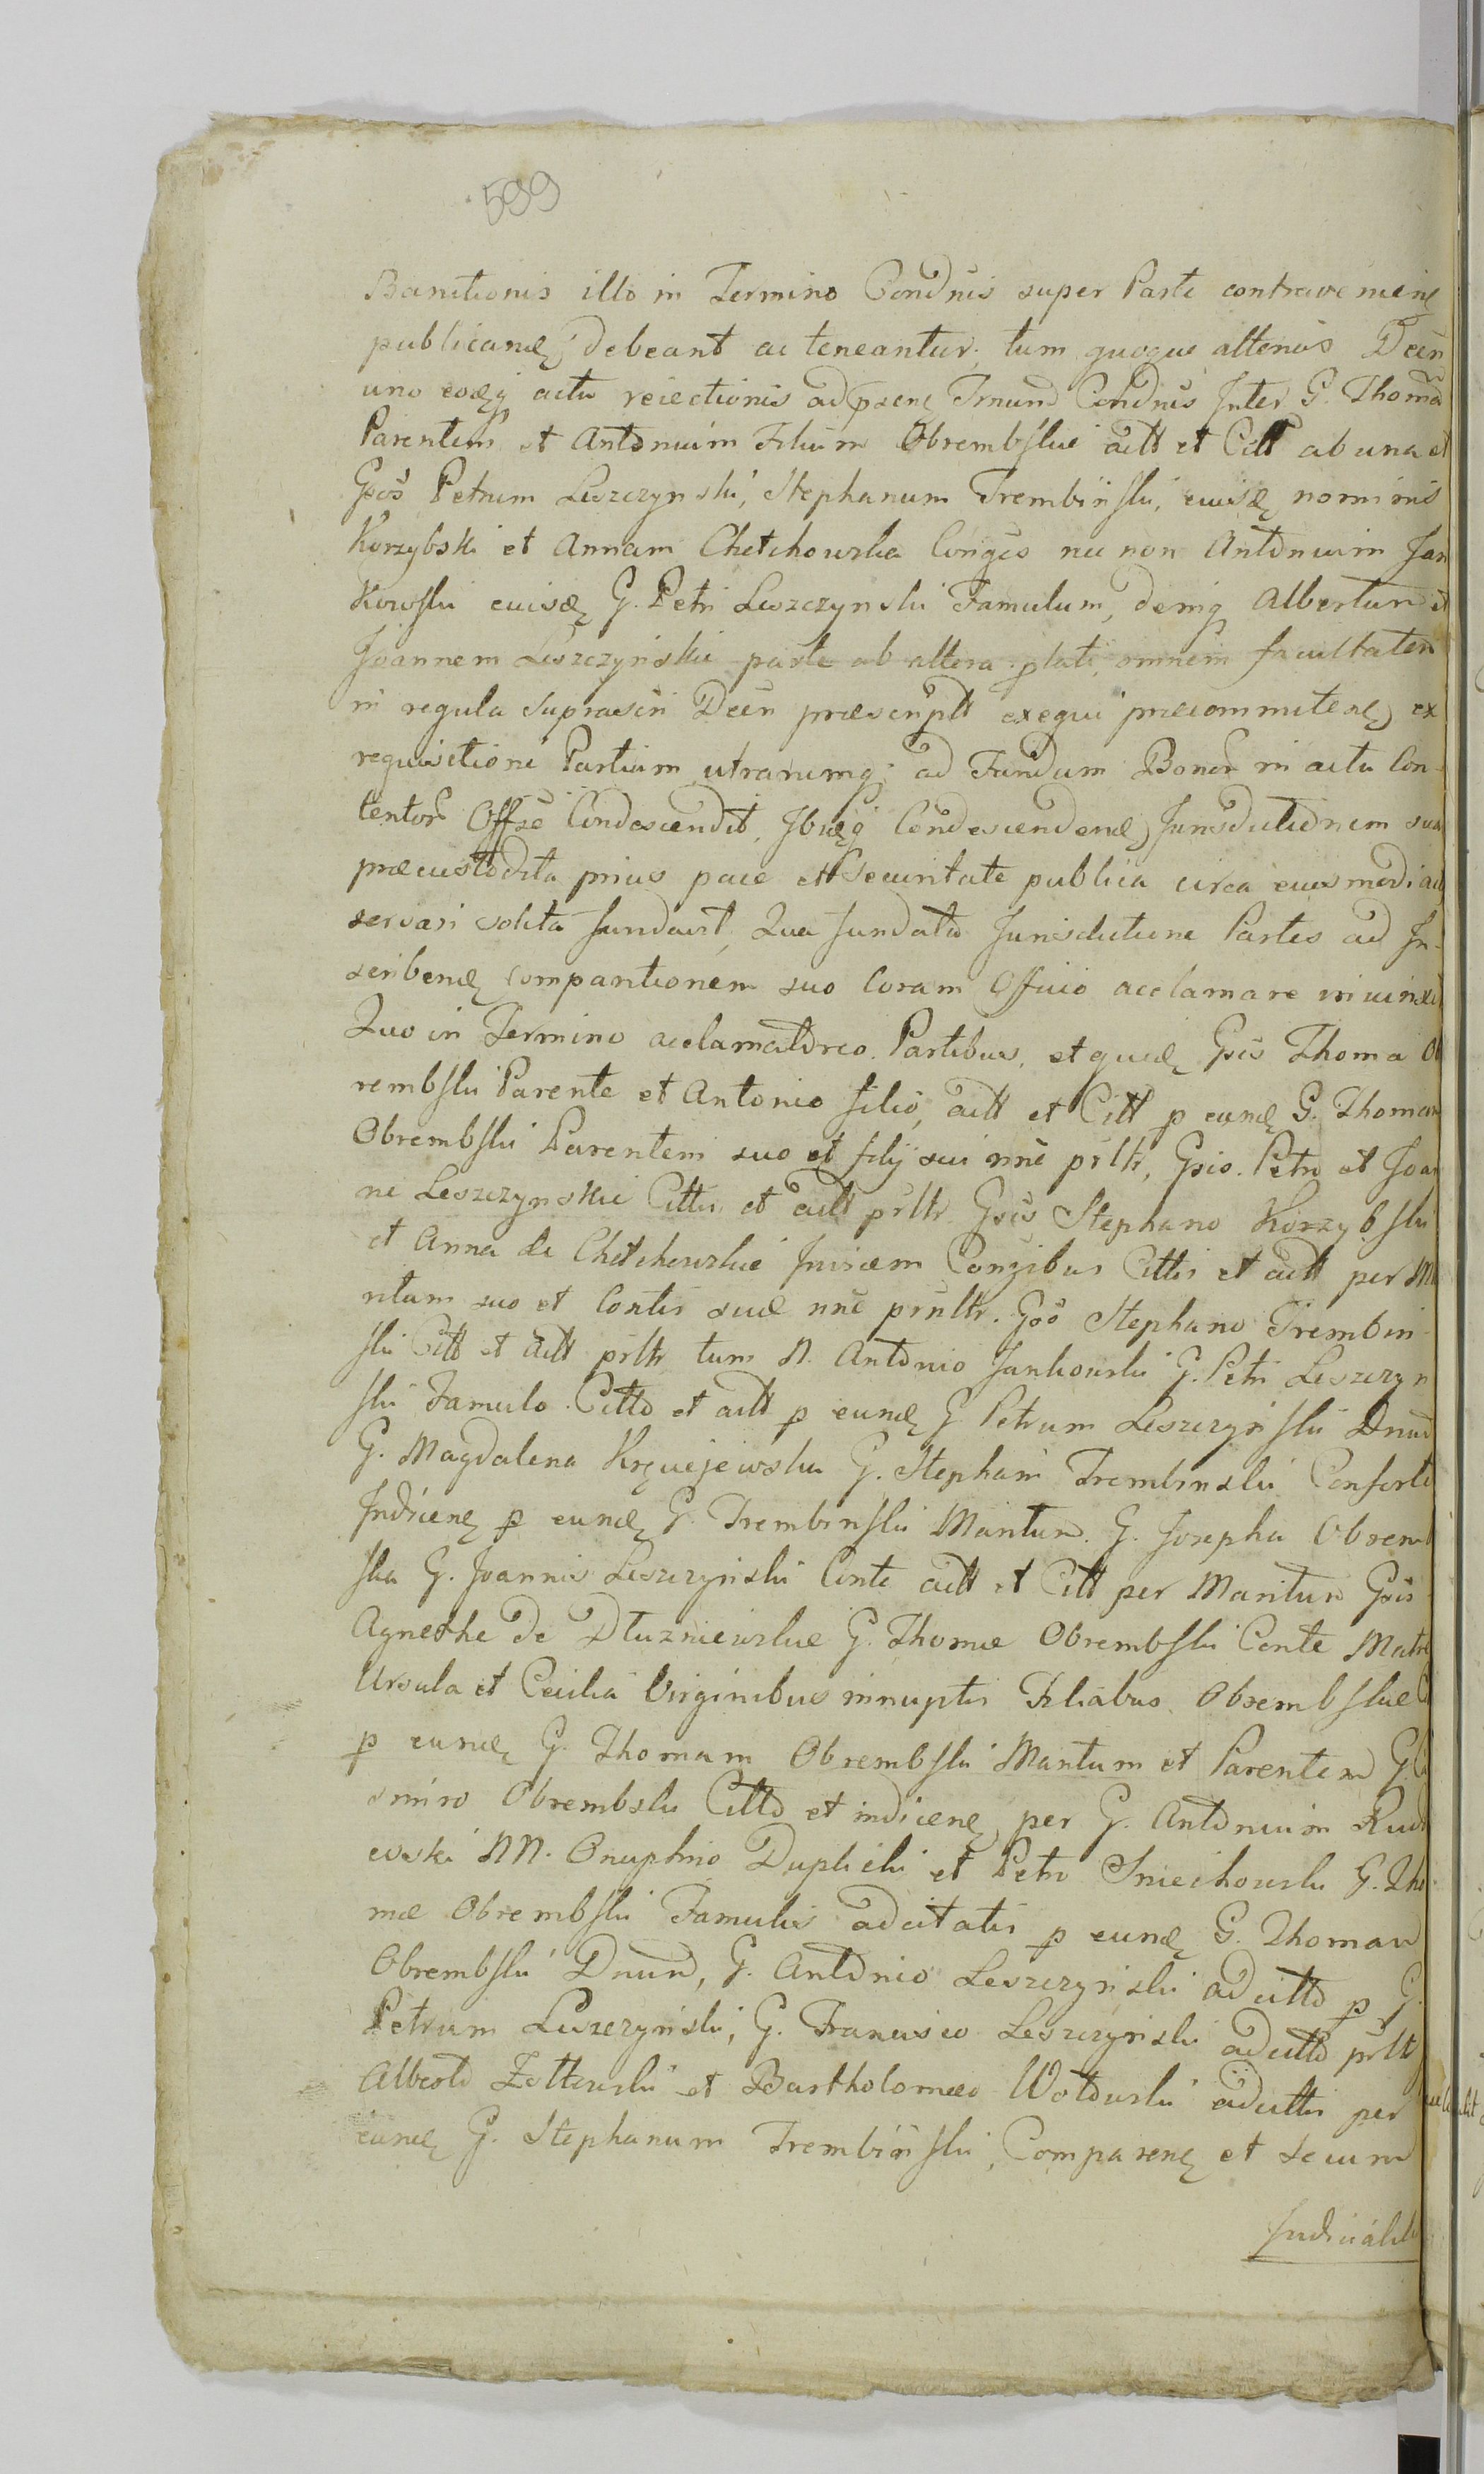 599
Banitionis illo in Termino Condnis super Parte contravenienę
publicandę, debeant ac teneantur, tum quoque altenus Decn
uno eodęq actu reiectionis ad præsenę Trnum Condnis Inter G. Thomā
Parentem et Antonium Filium Obrembskie actt et Citt ab una et
Gsos Petrum Leszczynski, Stephanum Trembinski, eiusdę nominis
Korzybski et Annam Chetchowska Conges nec non Antonium Jan
Kowski eiusdę G. Petri Leszczynski Famulum, deniq Albertum et
Joannem Leszczyńskie parte ab altera plati, omnem facultatem
in regula suprascri Decn præscriptt exequi præcommittenę, ex
requisitione Partium utrarumq; ad Fundum Bonor in actu Con-
tentor Offse Condescendit, Ibidęq Condescendendę Jurisdictionem suā
præcustodita prius pace ett Securitate publica circa eiusmodi act
servari solita fundavit, Qua fundata Jurisdictione Partes ad In-
scribendę comparitionem suo Coram Officio acclamare iniunxit
Quo in Termino acclamatoreo Partibus, et quidę Gsis Thoma Ob
rembski Parente et Antonio filio, actt et Citt p eundę G. Thomam
Obrembski Parentem suo et filij sui nne prltr, Gsio. Petro et Joan
ne Leszczynskie Cittis et actt prltr Gsis Stephano Korzybski
et Anna de Chetchowskie Invicem Congibus Cittis et actt per Ma
ritum suo et Contis suæ nne prnltr. Gso Stephano Trembin
ski Citt et actt prltr tum N. Antonio Jankowski G. Petri Leszczyn
ski Famulo Citto et actt p eundę G Petrum Leszczynski Dnum
G. Magdalena Kręciejewska G. Stephani Trembinski Consorte
Indicenę p eundę G. Trembinski Maritum. G. Josepha Obremb
ska G. Joannis Leszczynski Conte actt et Citt per Maritum Gsis
Agnethe de Dłuzniewskie G. Thomæ Obrembski Conte Matre
Ursula et Cecilia Virginibus innuptis Filiabus Obrembskie C
p eundę G. Thomam Obrembski Maritum et Parentem G. Ca
simiro Obrembski Citto et indicenę per G. Antonium Rud
ewski NN. Onuphrio Duplicki et Petro Sniechowski G. Tho
mæ Obrembski Famulis adcitatis p eundę G. Thomam
Obrembski Dnum, G. Antonio Leszczynski adcitto p G.
Petrum Leszczynski, G. Francisco Leszczynski adcitto prltr
Alberto Zołtowski et Bartholomæo Wołowski adcittis per
eundę G. Stephanum Trembinski, Comparenę et Secum
Judicialit